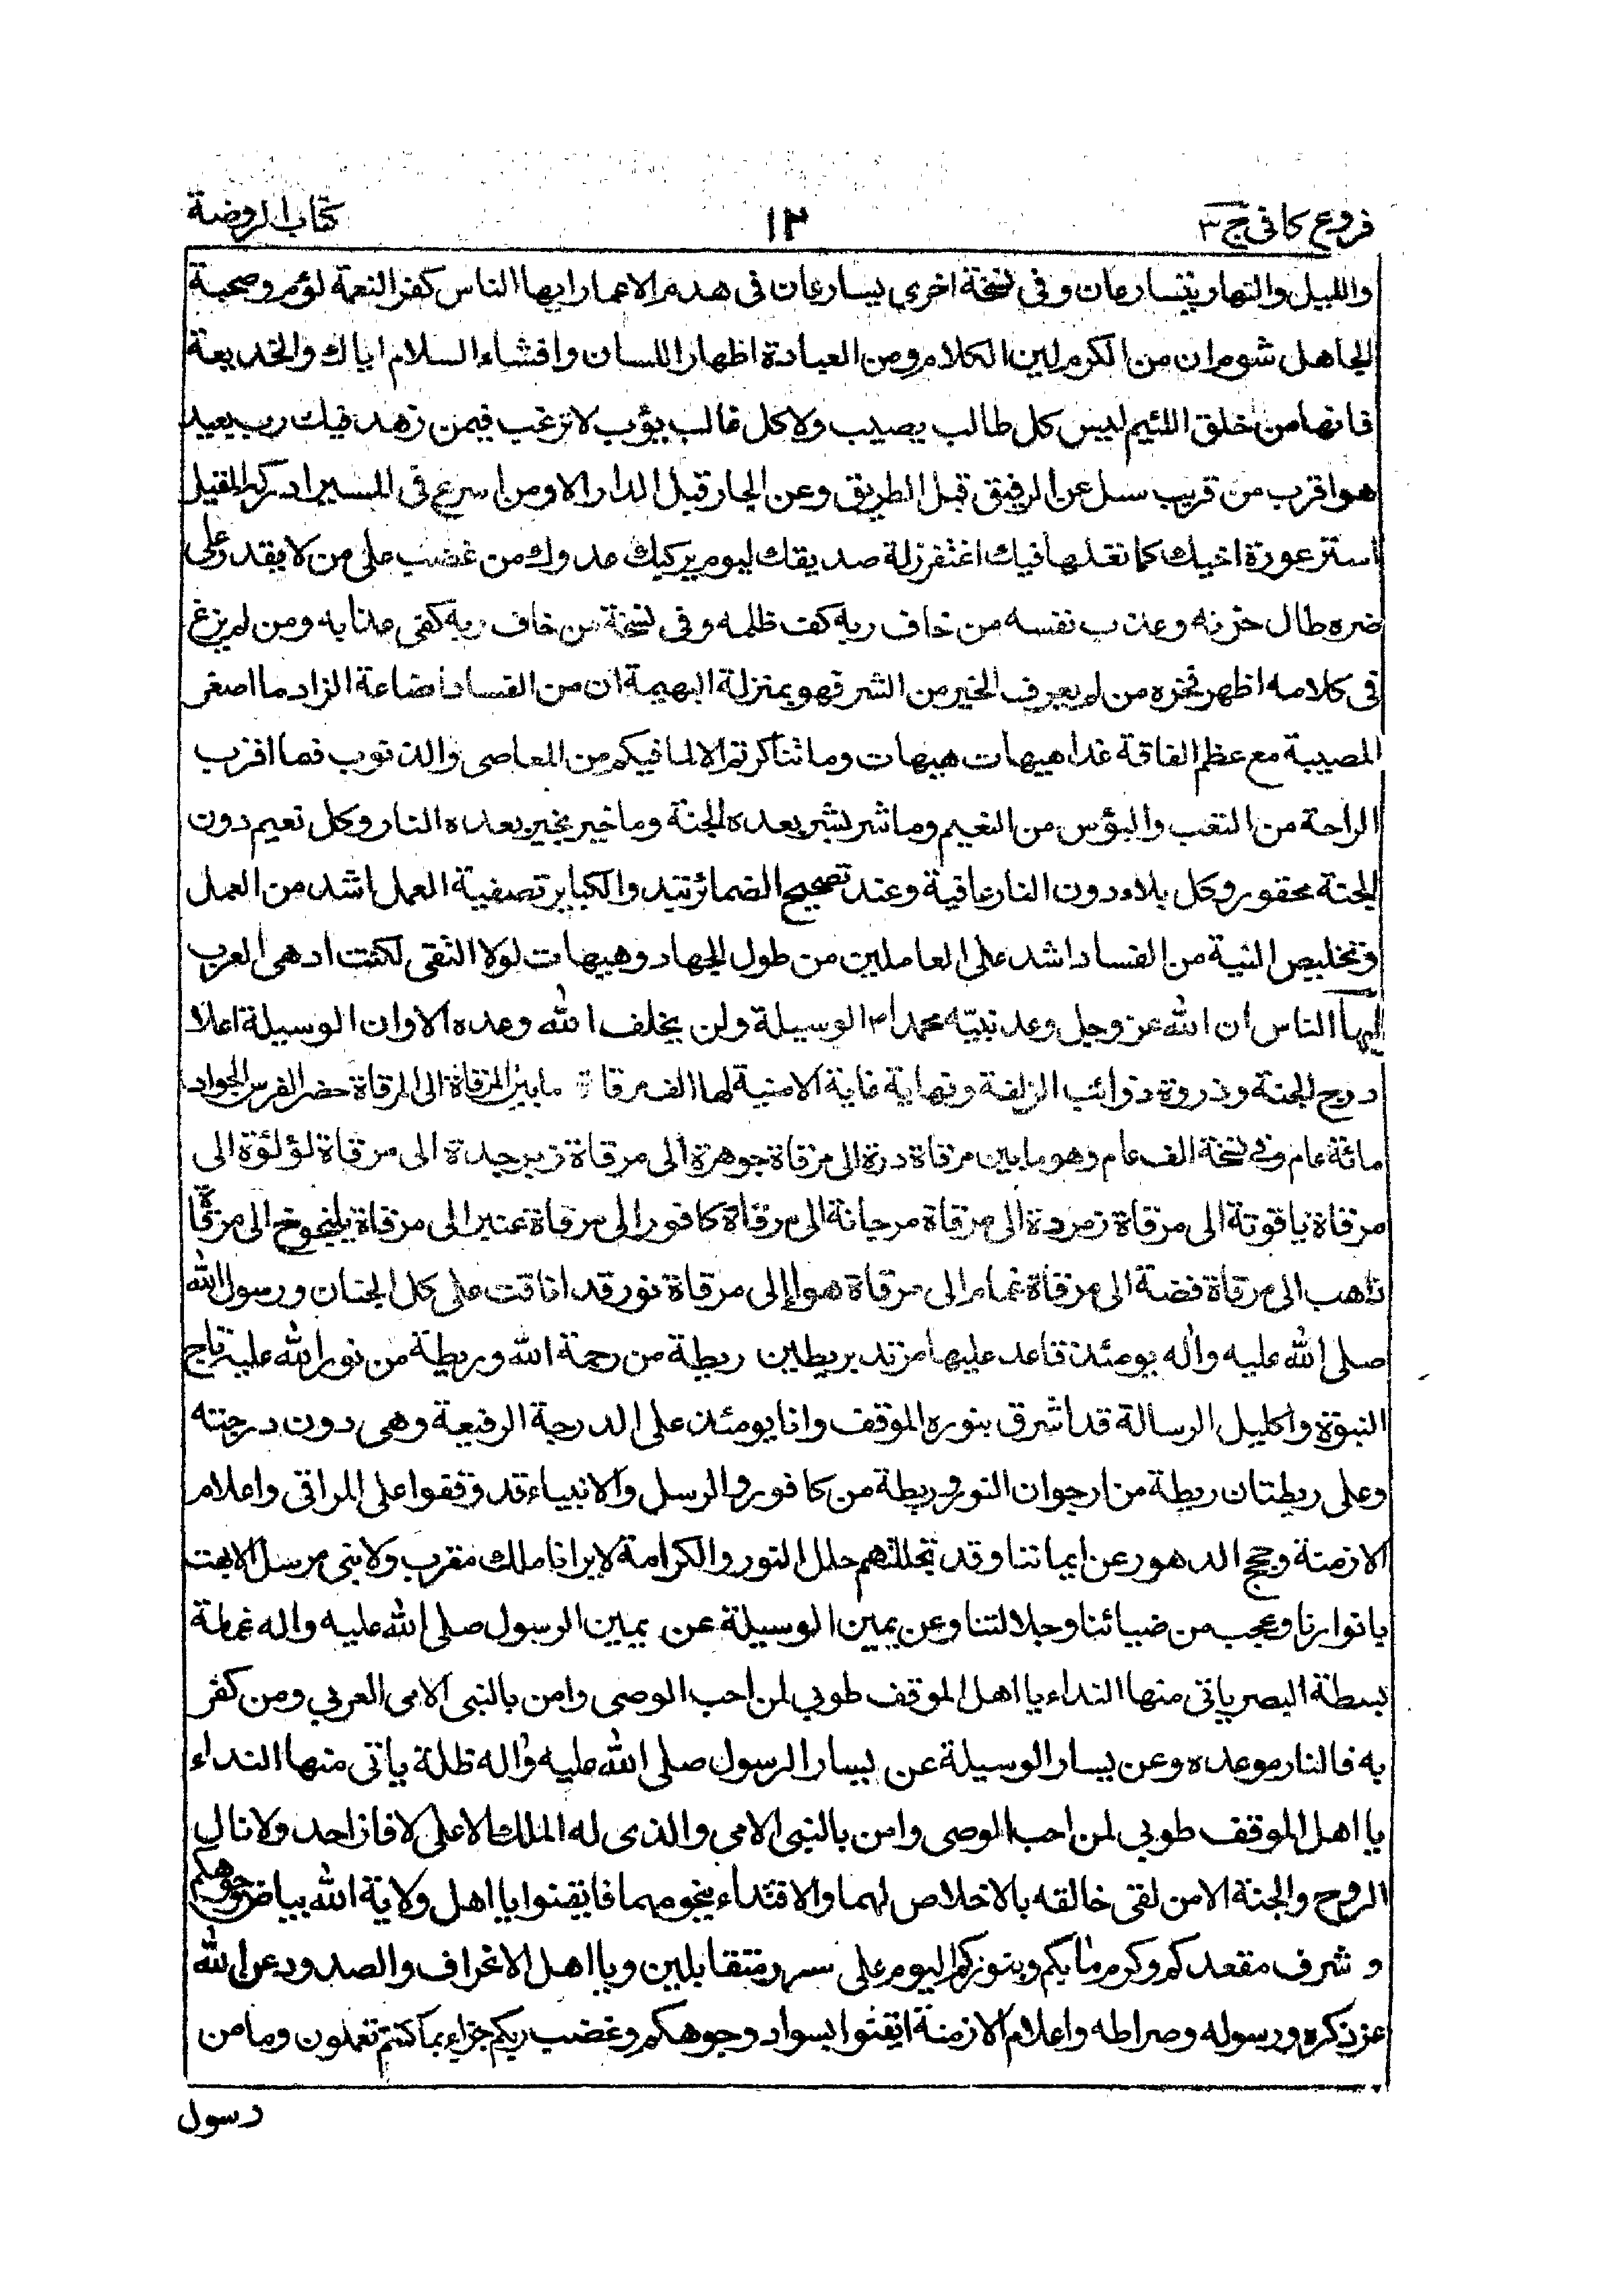 فروع كافى ج ٣
١٢
كتاب الروضة
والليل والنهار يتسارعان وفى نسخة اخرى يسارعان فى هدم الاعمار ايها الناس كفر النعمة لؤم وصحبة
الجاهل شوم ان من الكرم لين الكلام ومن العبادة اظهار اللسان وافشاء السلام اياك والخديعة
فانها من خلق اللئيم ليس كل طالب يصيب ولا كل غائب يؤب لا ترغب فيمن زهد فيك رب بعيد
هو اقرب من قريب سل عن الرفيق قبل الطريق وعن الجار قبل الدار الا ومن اسرع فى المسير ادركه المقيل
استر عورة اخيك كما تعلمها فيك اغتفر زلة صديقك ليوم يركبك عدوك من غضب على من لا يقدر على
ضره طال حزنه وعذب نفسه من خاف ربه كف ظلمه وفى نسخة من خاف ربه كفى عذابه ومن لم يزغ
فى كلامه اظهر فخره من لم يعرف الخير من الشر فهو بمنزلة البهيمة ان من الفساد اضاعة الزاد ما اصغر
المصيبة مع عظم الفاقة غدا هيهات هيهات وما تناكرتم الا لما فيكم من المعاصى والذنوب فما اقرب
الراحة من التعب والبؤس من النعيم وما شر بشر بعده الجنة وما خير بخير بعده النار وكل نعيم دون
الجنة محقور وكل بلاء دون النار عافية وعند تصحيح الضمائر تبد والكباير تصفية العمل اشد من العمل
وتخليص النية من الفساد اشد على العاملين من طول الجهاد وهيهات لولا التقى لكنت ادهى العرب
ايها الناس ان الله عز وجل وعد نبيّه محمدا ص الوسيلة ولن يخلف الله وعده الا وان الوسيلة اعلا
درج الجنة وذروة ذوائب الزلفة ونهاية غاية الامنية لها الف مرقاة ما بين المرقاة الى المرقاة حضر الفرس الجواد
مائة عام وفى نسخة الف عام وهو ما بين مرقاة درة الى مرقاة جوهرة الى مرقاة زبرجدة الى مرقاة لؤلؤة الى
مرقاة ياقوتة الى مرقاة زمردة الى مرقاة مرجانة الى مرقاة كافور الى مرقاة عنبر الى مرقاة يلنجوج الى مرقاة
ذهب الى مرقاة فضة الى مرقاة غمام الى مرقاة هواء الى مرقاة نور قد انافت على كل الجنان ورسول الله
صلى الله عليه واله يومئذ قاعد عليها مرتد بريطين ريطة من رحمة الله وريطة من نور الله عليه تاج
النبوّة واكليل الرسالة قد اشرق بنوره الموقف وانا يومئذ على الدرجة الرفيعة وهى دون درجته
وعلى ريطتان ريطة من ارجوان النور وريطة من كافور والرسل والانبياء قد وقفوا على المراقى واعلام
الازمنة وحجج الدهور عن ايماننا وقد تجللهم حلل النور والكرامة لا يرانا ملك مقرب ولا نبى مرسل الا بهت
بانوارنا وعجب من ضيائنا وجلالتنا وعن يمين الوسيلة عن يمين الرسول صلى الله عليه واله غمامة
بسطة البصر ياتى منها النداء يا اهل الموقف طوبى لمن احب الوصى وامن بالنبى الامى العربى ومن كفر
به فالنار موعده وعن يسار الوسيلة عن يسار الرسول صلى الله عليه واله ظلة ياتى منها النداء
يا اهل الموقف طوبى لمن احب الوصى وامن بالنبى الامى والذى له الملك الاعلى لا فاز احد ولا نال
الروح والجنة الا من لقى خالقه بالاخلاص لهما والاقتداء بنجومهما فايقنوا يا اهل ولاية الله ببياض وجوهكم
وشرف مقعدكم وكرم مابكم وبفوزكم اليوم على سرر متقابلين ويا اهل الانحراف والصدود عن الله
عز ذكره ورسوله وصراطه واعلام الازمنة ايقنوا بسواد وجوهكم وغضب ربكم جزاء بما كنتم تعملون وما من
رسول